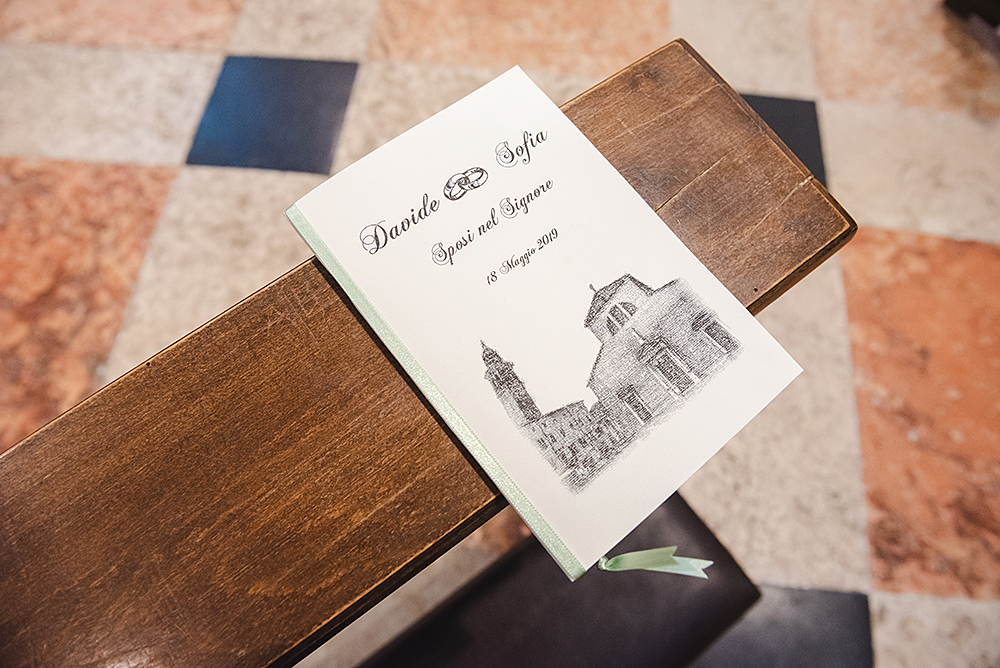 Davide Sofia
Sposi nel Signore
18 Maggio 2019